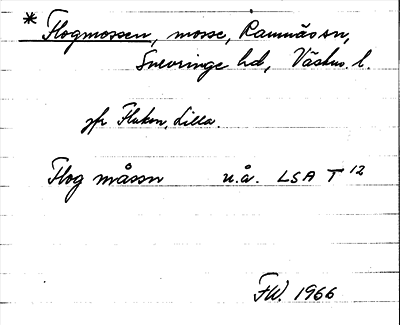 * Flogmossen, mosse, Ramnäs sn,
Snevringe hd, Västm. l.
jfr Flaken, Lilla.
Flog måssn u.å. LSA T 12
FW. 1966